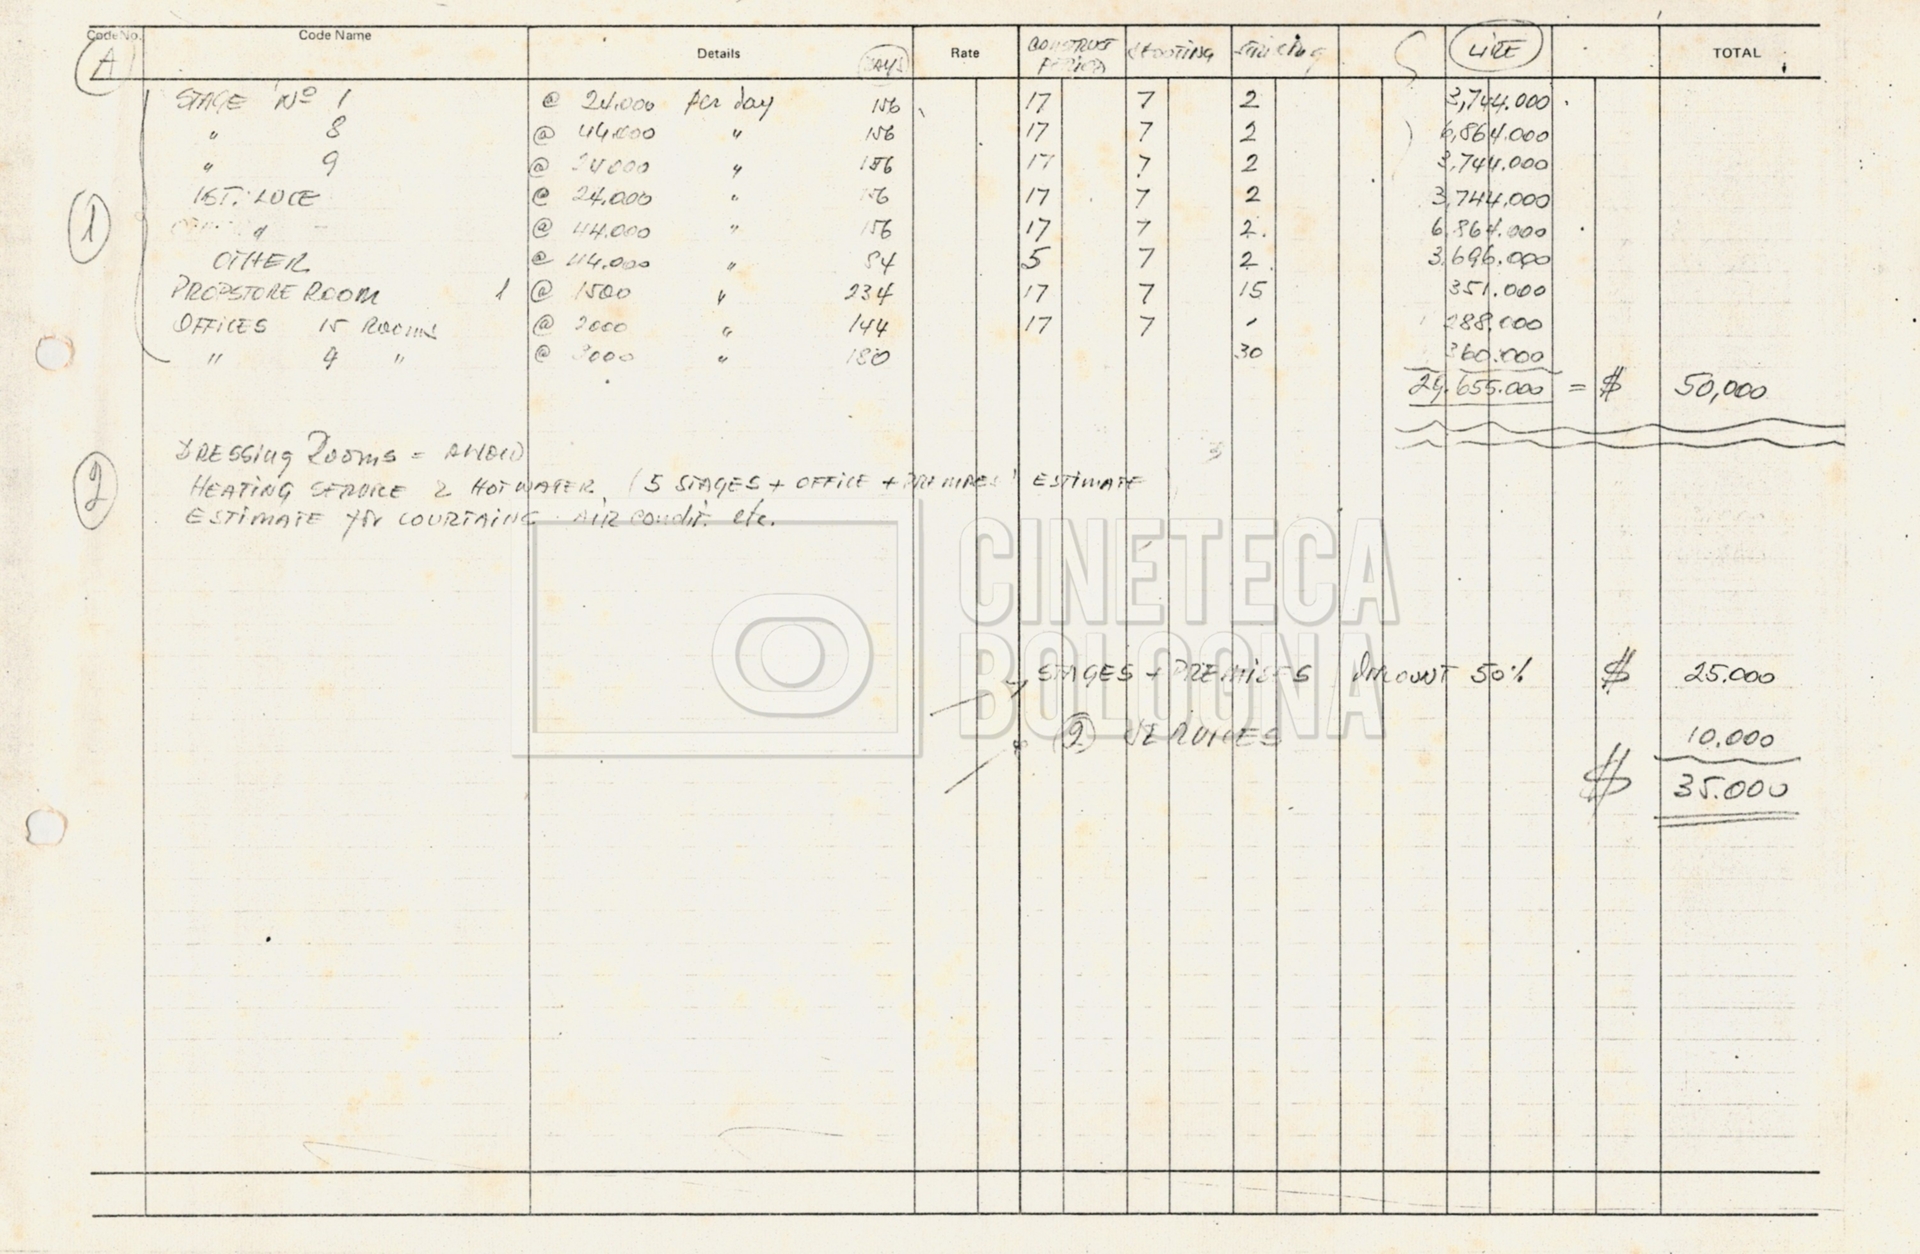 Code No. Code Name Details DAYS Rate CONSTRUCT PERIOD SHOOTING STRIKING LIRE TOTAL
A
STAGE Nº 1 @ 24.000 per day 156 17 7 2 3,744.000
" 8 @ 44.000 " 156 17 7 2 6,864.000
" 9 @ 24000 " 156 17 7 2 3,744.000
1
IST. LUCE @ 24.000 " 156 17 7 2 3,744.000
" @ 44.000 " 156 17 7 2. 6,864.000
OTHER @ 44.000 " 84 5 7 2 3,696.000
PROPSTORE ROOM 1 @ 1500 " 234 17 7 15 351.000
OFFICES 15 ROOMS @ 2000 " 144 17 7 - 288.000
" 9 " @ 2000 " 180 30 360.000
29.655.000 = $ 50,000
2
DRESSING ROOMS =
HEATING SERVICE & HOT WATER (5 STAGES + OFFICE + PREMISES) ESTIMATE
ESTIMATE for COURTAINS AIR condit. etc.
CINETECA
BOLOGNA
STAGES + PREMISES AMOUNT 50% $ 25.000
2 SERVICES 10.000
$ 35.000